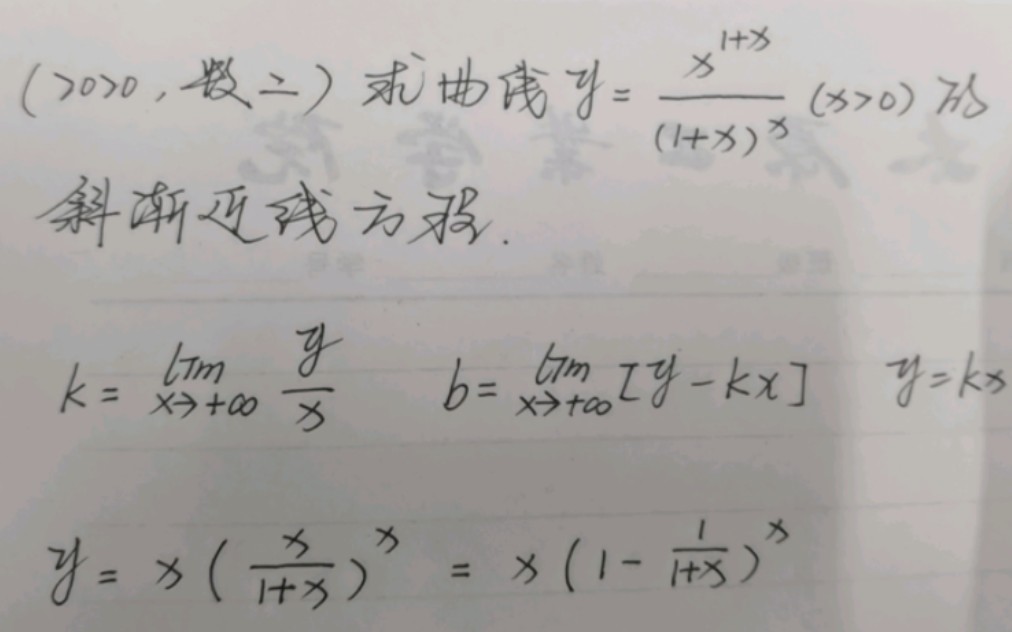 (2020，数二) 求曲线 y = x^{1+x}/(1+x)^x (x>0) 的
斜渐近线方程.
k = lim_{x→+∞} y/x  b = lim_{x→+∞} [y-kx]  y=kx
y = x(x/(1+x))^x = x(1 - 1/(1+x))^x